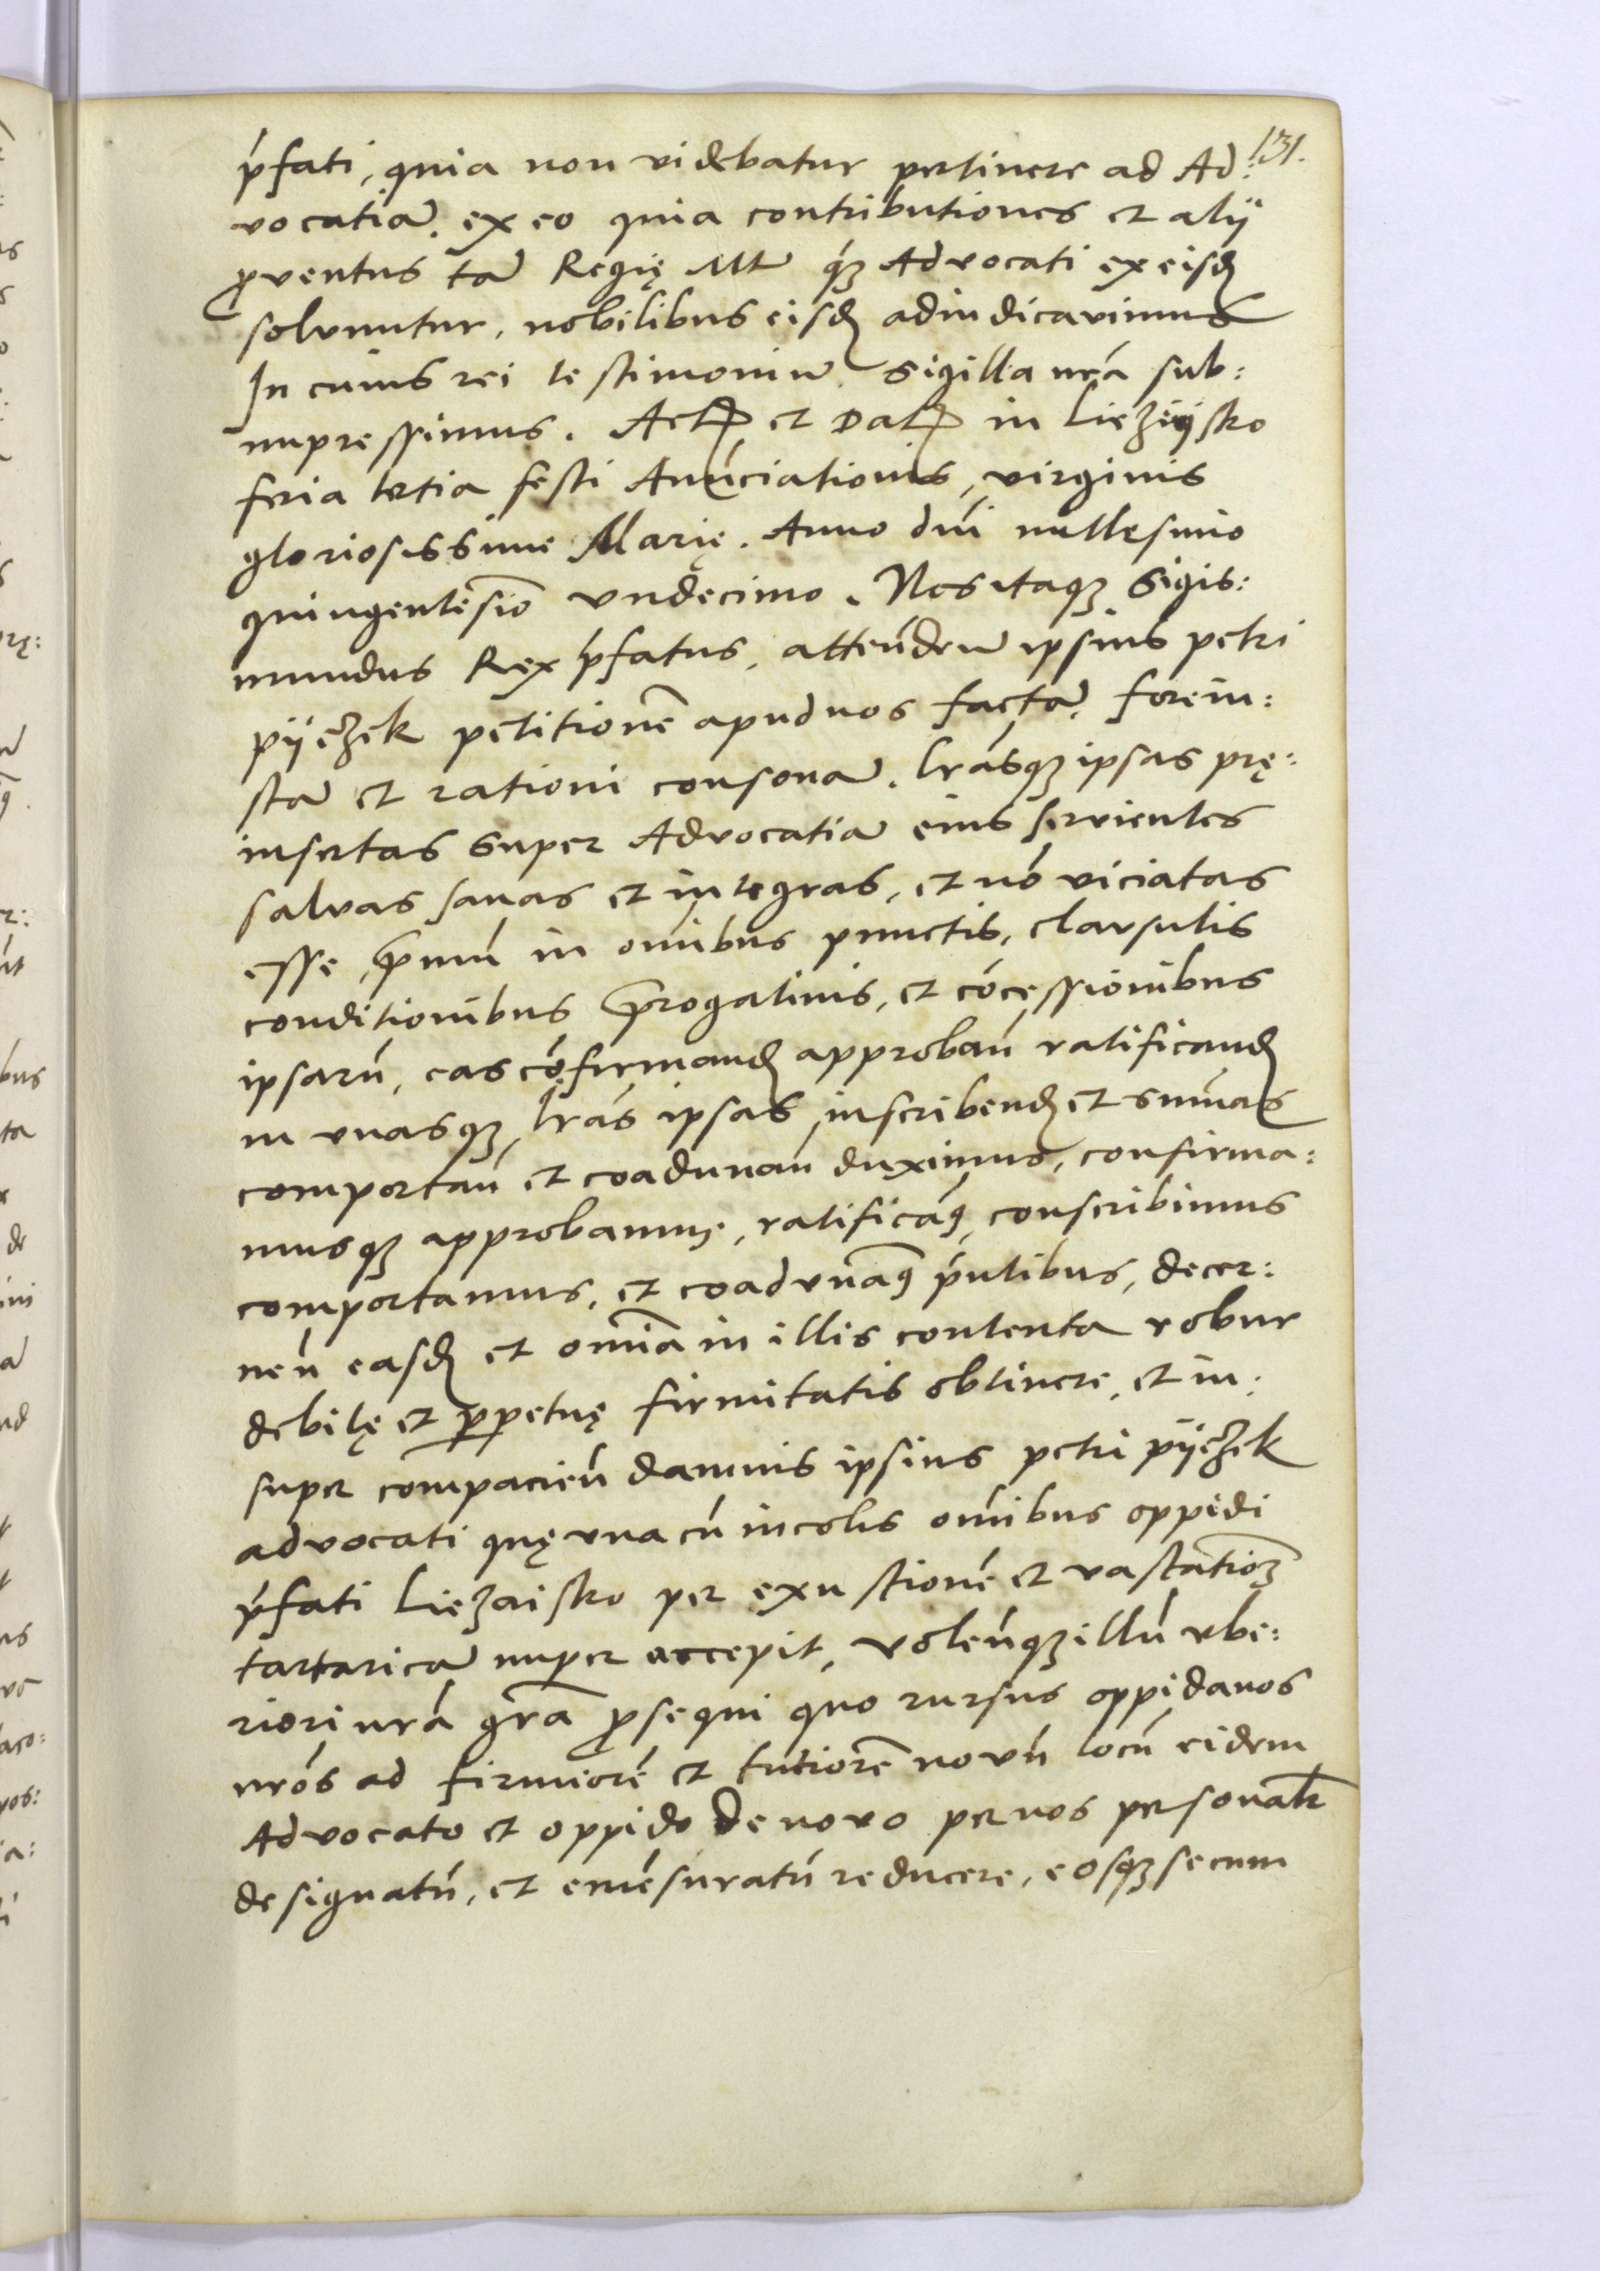 131.
p̃fati, quia non videbatur pertinere ad Ad:
vocatiã. ex eo quia contributiones et alÿ
ꝓventus tã Regię Mtĩ q̃ꝫ Advocati ex eisđ
solvuntur, nobilibus eisđ adiudicavimus
In cuius rei testimoniũ Sigilla nr̃a sub:
impressimus. Actꝝ et Datꝝ in Lieżÿsko
feria tertia festi Anũciationis, virginis
gloriosissime Marię. Anno dñi millesimo
quingentesiõ undecimo. Nos itaqꝫ Sigis:
mundus Rex p̃fatus, attendeñ ipsius petri
pÿeżek petitionẽ apud nos factã. fore iu:
stã et rationi consonã. lr̃asqꝫ ipsas prę:
insertas super Advocatia eius servientes
salvas sanas et integras, et nõ viciatas
esse, p̃miũ in oñibus punctis, clausulis
conditionibus p̃rogativis, et cõcessionibus
ipsarũ, eas cõfirmanđ approbañ ratificanđ
in unasqꝫ lr̃as ipsas inscribenđ et sum̃as
comportañ et coadunañ duximus, confirma:
musqꝫ approbamus, ratificãꝰ, conscribimus
comportamus, et coadvnãꝰ p̃ntibus, decer:
neñ easđ et oĩnia in illis contenta robur
debitę et ꝑpetuę firmitatis obtinere, et in:
super compacieñ damnis ipsius petri pÿeżek
advocati quę una cũ incolis oñibus oppidi
p̃fati Lieżaisko per exustionẽ et vastatiõꝫ
tartaricã nuper accepit, voleñqꝫ illũ vbe:
riori nr̃a gr̃a ꝓsequi quo rursus oppidanos
nr̃os ad firmiorẽ et tutiorẽ novũ locũ eidem
Advocato et oppido de novo per nos personalr̃
designatũ, et emẽsuratũ reducere, eosqꝫ secum